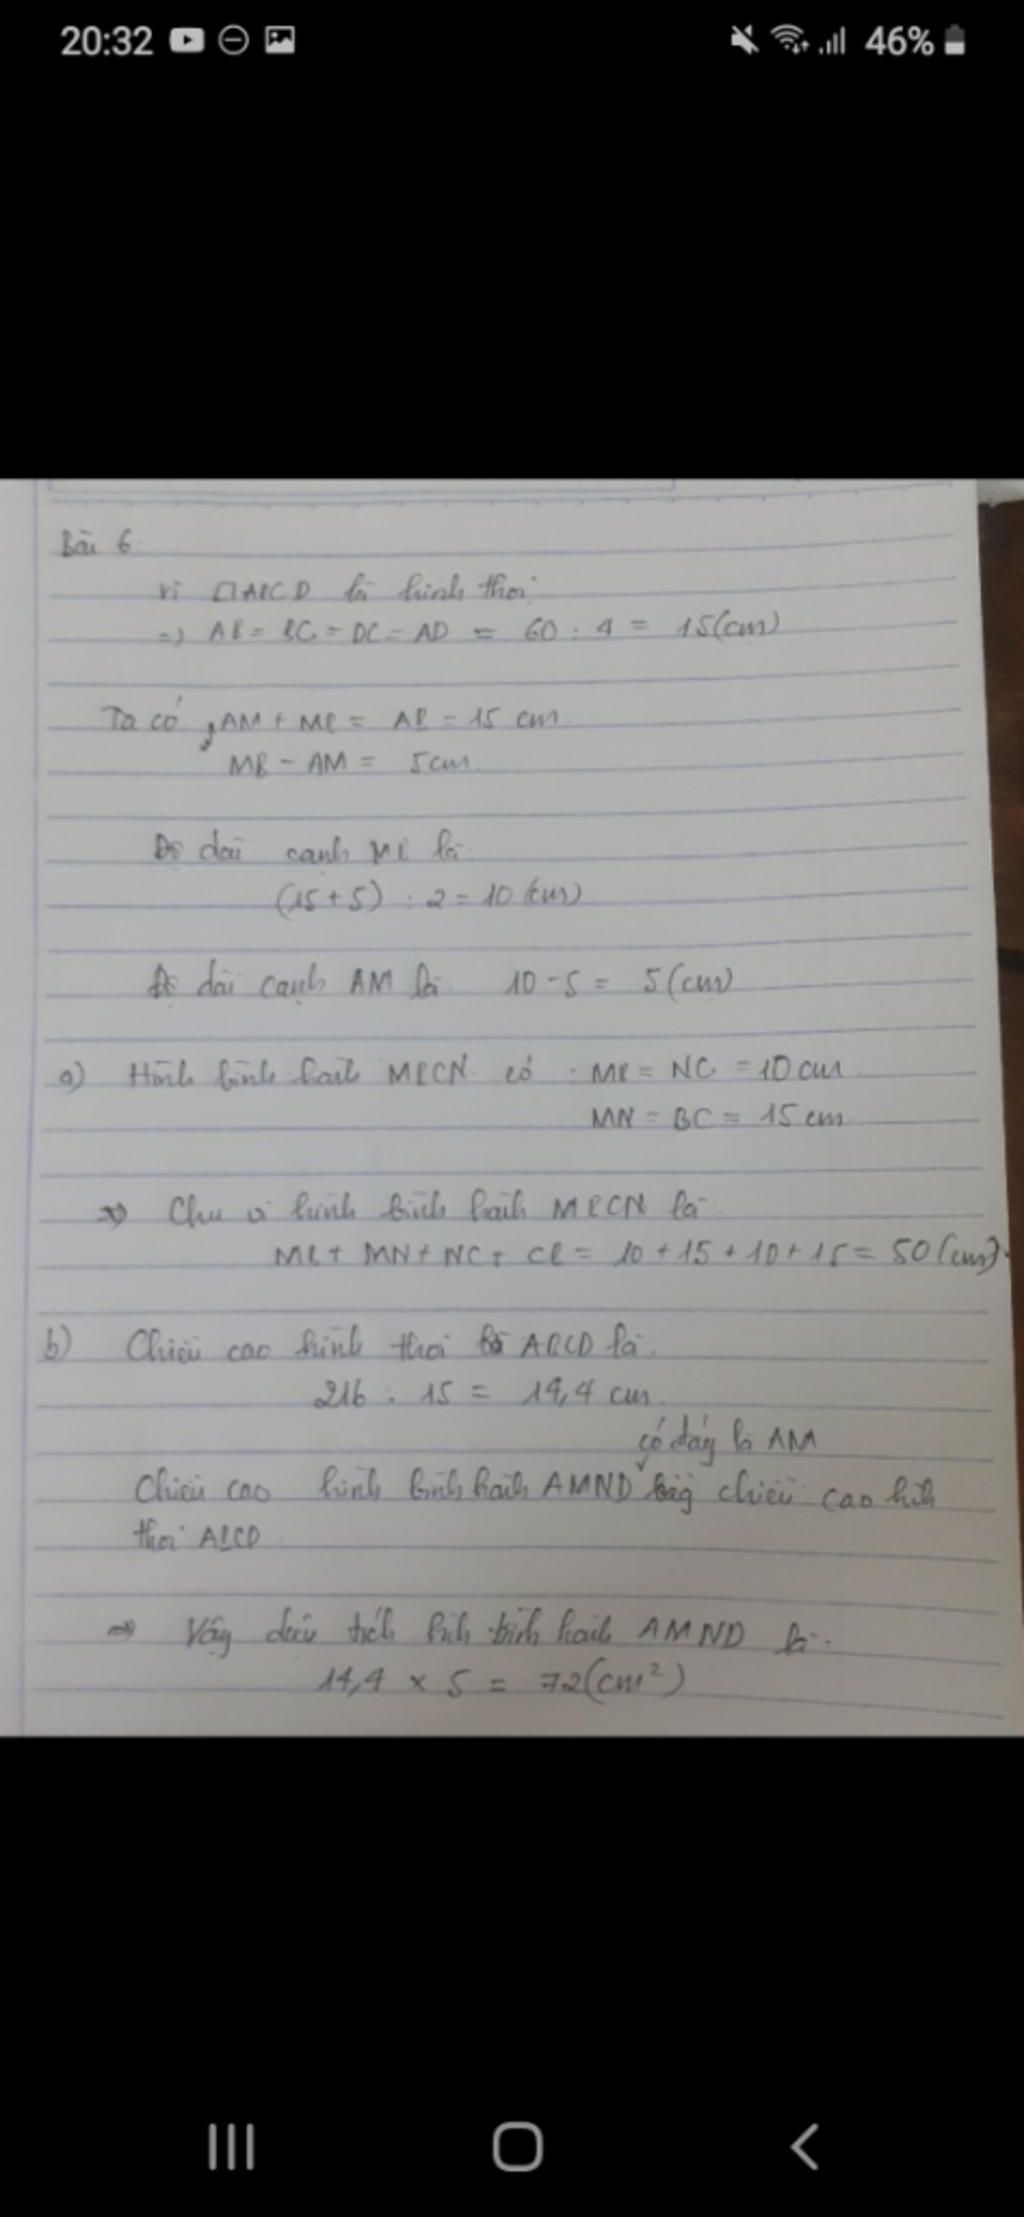 20:32 46%
Bài 6
Vì □ABCD là hình thoi
=> AB = BC = DC = AD = 60 : 4 = 15(cm)
Ta có, AM + MB = AB = 15 cm
MB - AM = 5cm.
Độ dài cạnh MB là
(15+5) : 2 = 10 (cm)
Độ dài cạnh AM là. 10 - 5 = 5(cm)
a) Hình bình hành MBCN có : MB = NC = 10 cm
MN = BC = 15 cm.
=> Chu vi hình bình hành MBCN là
MB + MN + NC + CB = 10 + 15 + 10 + 15 = 50 (cm).
b) Chiều cao hình thoi ABCD là.
216 : 15 = 14,4 cm.
có đáy là AM
Chiều cao hình bình hành AMND bằng chiều cao hình
thoi ABCD.
=> Vậy diện tích hình bình hành AMND là.
14,4 x 5 = 72(cm²)